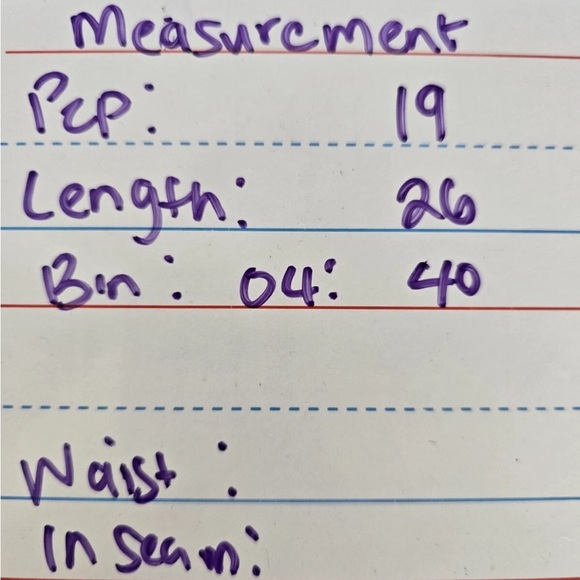 Measurement
P2P: 19
Length: 26
Bin: 04: 40
Waist:
In seam: